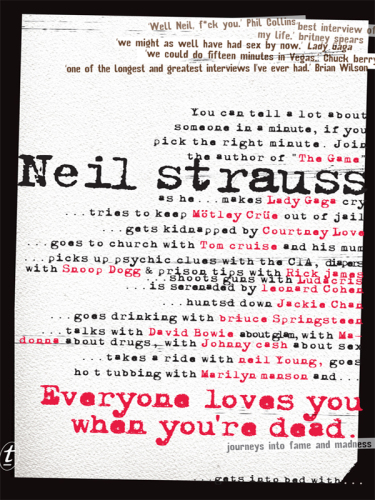 'Well Neil, f*ck you.' Phil Collins
best interview of
my life.' britney spears
'we might as well have had sex by now.' Lady Gaga
'we could do fifteen minutes in Vegas.' Chuck berry
'one of the longest and greatest interviews I've ever had.' Brian Wilson
You can tell a lot about
someone in a minute, if you
pick the right minute. Join
the author of "The Game"
Neil strauss
as he...makes Lady Gaga cry
...tries to keep Mötley Crüe out of jail
...gets kidnapped by Courtney Love
...goes to church with Tom cruise and his mum
...picks up psychic clues with the CIA, diapers
with Snoop Dogg & prison tips with Rick james
...shoots guns with Ludacris
...is serenaded by leonard Cohen
...huntsd down Jackie Chan
...goes drinking with briuce Springsteen
...talks with David Bowie about glam, with Ma-
donna about drugs, with Johnny cash about sex
...takes a ride with neil Young, goes
hot tubbing with Marilyn manson and...
Everyone loves you
when you're dead.
journeys into fame and madness
t
...gets into bed with...